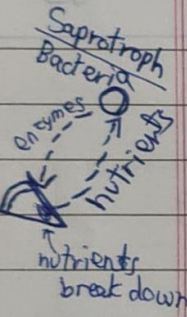 Saprotroph
Bacteria
enzymes
nutrients
nutrients
break down